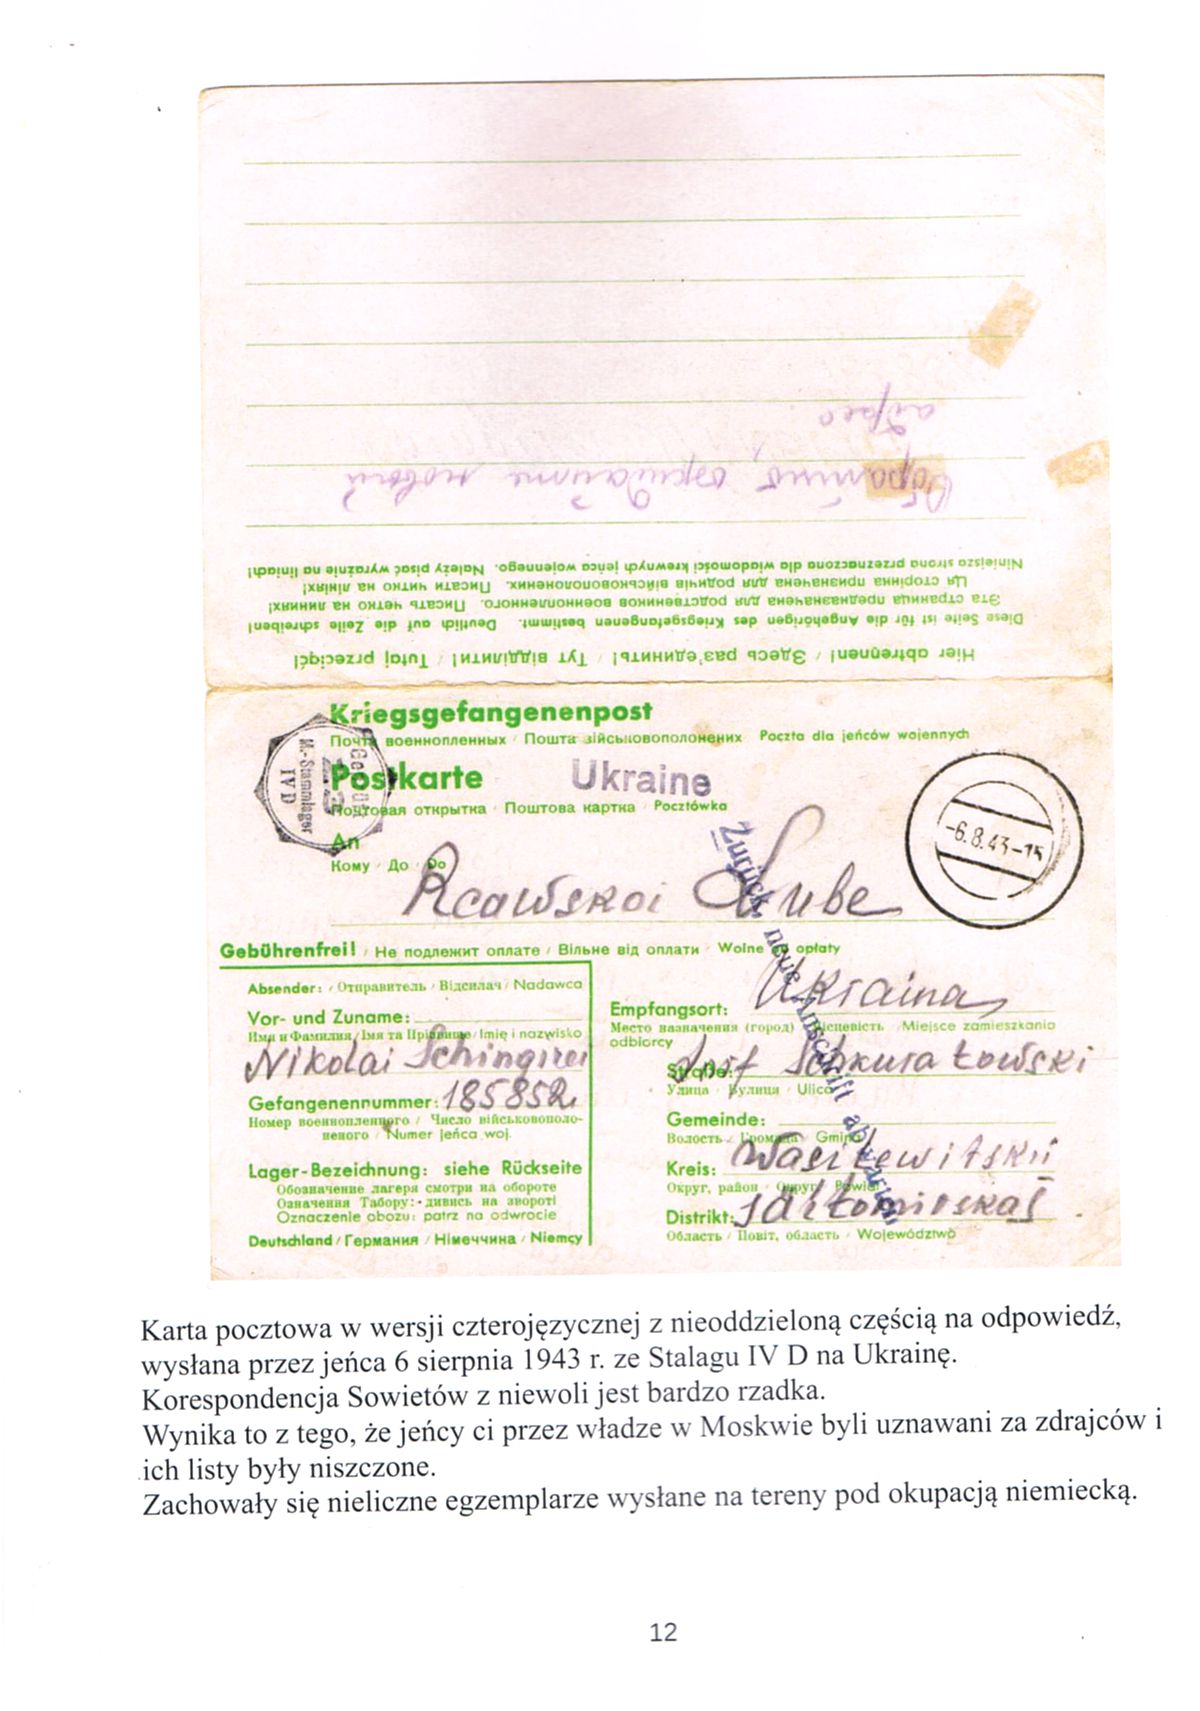 Обратно, ожидайте новый
адрес
Niniejsza strona przeznaczona dla wiadomości krewnych jeńca wojennego. Należy pisać wyraźnie na liniach!
Ця сторінка призначена для родичів військовополонених. Писати читко на лініях!
Эта страница предназначена для родственников военнопленного. Писать четко на линиях!
Diese Seite ist für die Angehörigen des Kriegsgefangenen bestimmt. Deutlich auf die Zeile schreiben!
Hier abtrennen! / Здесь раз'единить! / Тут відділити! / Tutaj przeciąć!
Kriegsgefangenenpost
Почта военнопленных / Пошта військовополонених / Poczta dla jeńców wojennych
Postkarte Ukraine
Почтовая открытка / Поштова картка / Pocztówka
M.-Stammlager
IV D
-6.8.43-15
An
Кому / До / Do
Lube
Zurück, neue Anschrift abwarten
Gebührenfrei! / Не подлежит оплате / Вільне від оплати / Wolne od opłaty
Absender: / Отправитель / Відсилач / Nadawca
Vor- und Zuname:
Имя и Фамилия / Імя та Прізвище / Imię i nazwisko
Nikolai Schingirei
Gefangenennummer: 185852
Номер военнопленного / Число військовополо-
неного / Numer jeńca woj.
Lager-Bezeichnung: siehe Rückseite
Обозначение лагеря смотри на обороте
Означення Табору: дивись на звороті
Oznaczenie obozu: patrz na odwrocie
Deutschland / Германия / Німеччина / Niemcy
Empfangsort: Ukraina
Место назначения (город) / Місцевість / Miejsce zamieszkania
odbiorcy
Straße:
Улица / Вулиця / Ulica
Gemeinde:
Волость / Громада / Gmina
Kreis: Wasilewitskii
Округ, район / Округ / Powiat
Distrikt:
Область / Повіт, область / Województwo
Karta pocztowa w wersji czterojęzycznej z nieoddzieloną częścią na odpowiedź,
wysłana przez jeńca 6 sierpnia 1943 r. ze Stalagu IV D na Ukrainę.
Korespondencja Sowietów z niewoli jest bardzo rzadka.
Wynika to z tego, że jeńcy ci przez władze w Moskwie byli uznawani za zdrajców i
ich listy były niszczone.
Zachowały się nieliczne egzemplarze wysłane na tereny pod okupacją niemiecką.
12